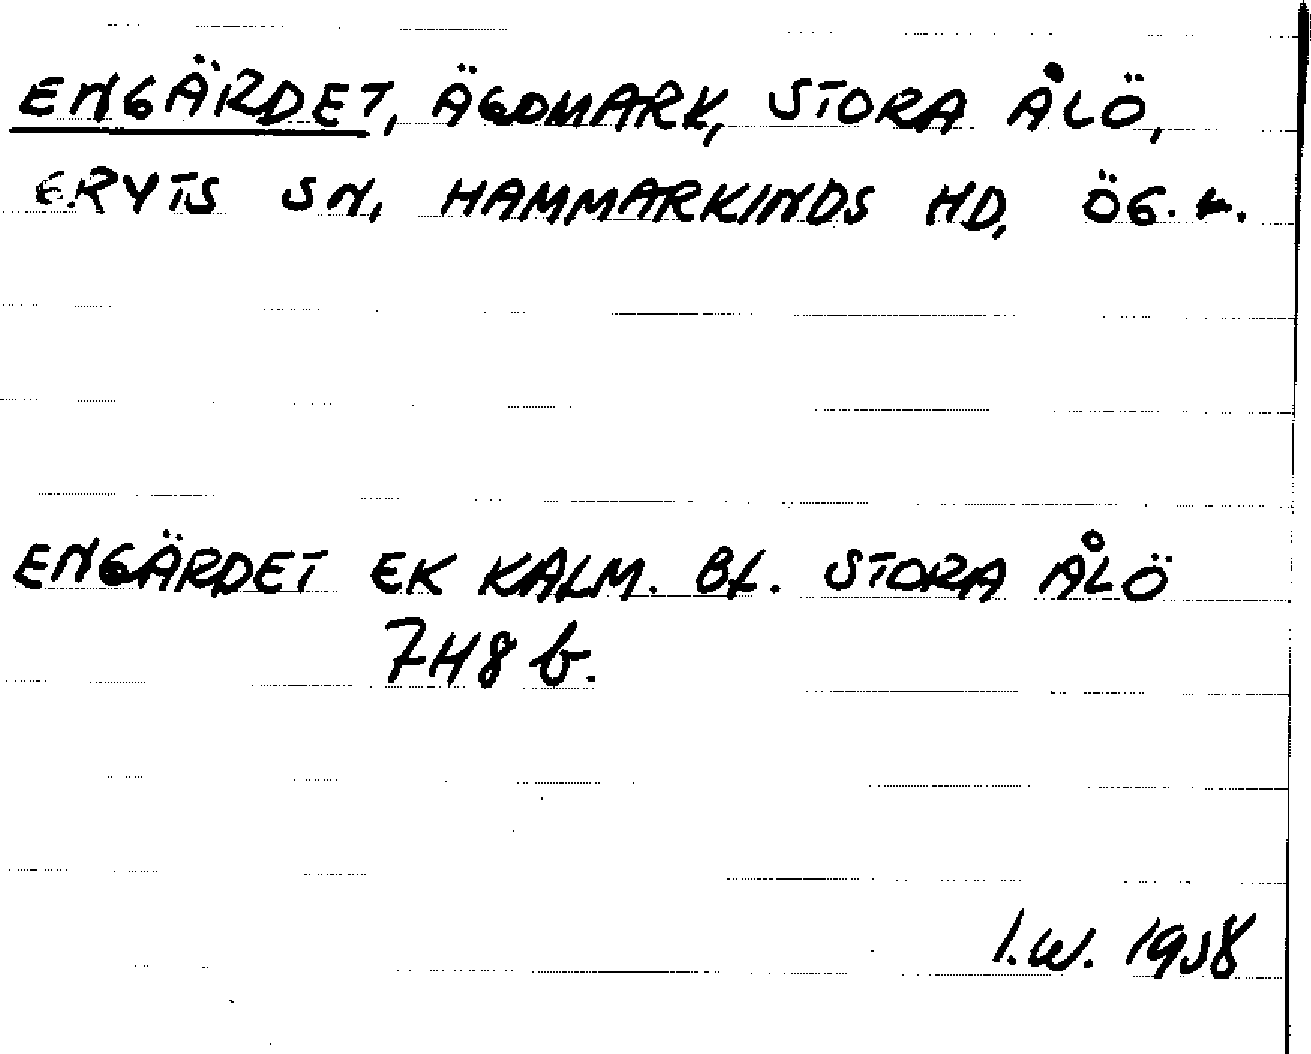 ENGÄRDET, ÄGOMARK, STORA ÅLÖ,
GRYTS SN, HAMMARKINDS HD, ÖG. L.
ENGÄRDET EK KALM. BL. STORA ÅLÖ
748 b.
I.W. 1958